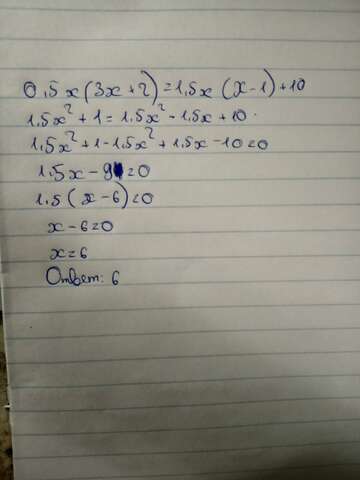 0,5x(3x+2)=1,5x(x-1)+10
1,5x²+1=1,5x²-1,5x+10
1,5x²+1-1,5x²+1,5x-10=0
1,5x-9=0
1,5(x-6)=0
x-6=0
x=6
Ответ: 6